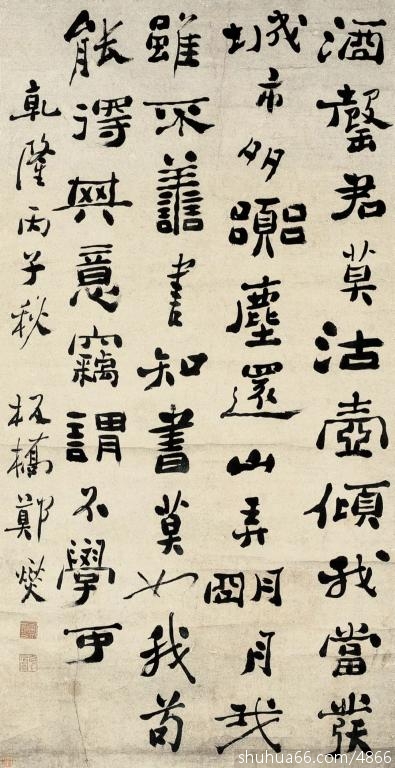 酒罄君莫沽壺傾我當發
城市多囂塵還山弄明月我
雖不善書知書莫如我苟
能得其意竊謂不學可
乾隆丙子秋板橋鄭燮
shuhua66.com/4866